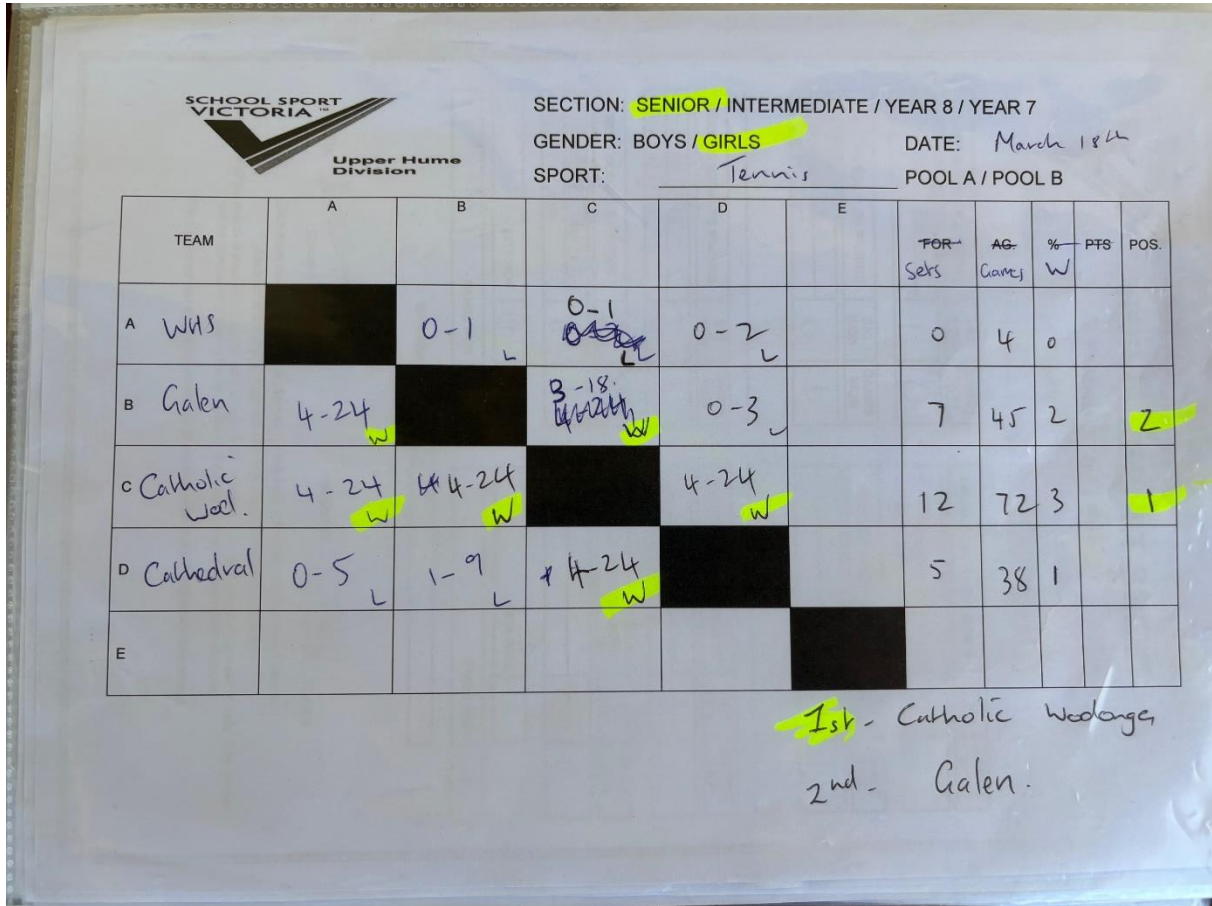 SCHOOL SPORT
VICTORIA ™
Upper Hume
Division
SECTION: SENIOR / INTERMEDIATE / YEAR 8 / YEAR 7
GENDER: BOYS / GIRLS DATE: March 18th
SPORT: Tennis POOL A / POOL B
A B C D E
TEAM FOR AG. % PTS POS.
Sets Games W
0-1
A WHS 0-1 L L L 0-2 L 0 4 0
3-18.
B Galen 4-24 W W 0-3 L 7 45 2 2
C Catholic Wod. 4-24 W 4-24 W 4-24 W 12 72 3 1
D Cathedral 0-5 L 1-9 L 4-24 W 5 38 1
E
1st - Catholic Wodonga
2nd - Galen.